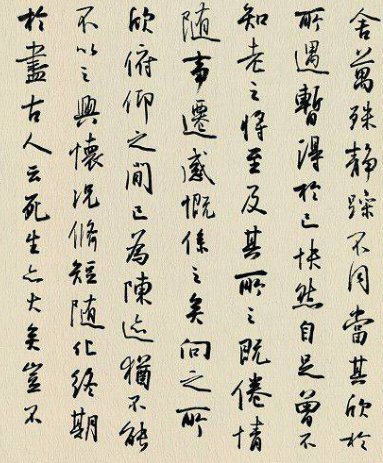 舍萬殊靜躁不同當其欣於
所遇暫得於己快然自足曾不
知老之將至及其所之既倦情
随事遷感慨係之矣向之所
欣俯仰之間已為陳迹猶不能
不以之興懷況脩短随化終期
於盡古人云死生亦大矣豈不